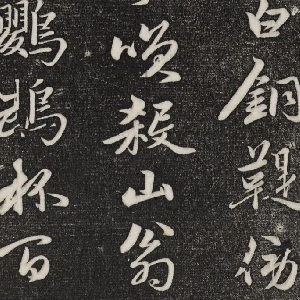 白銅鞮傍
咲殺山翁
鸚鵡杯百